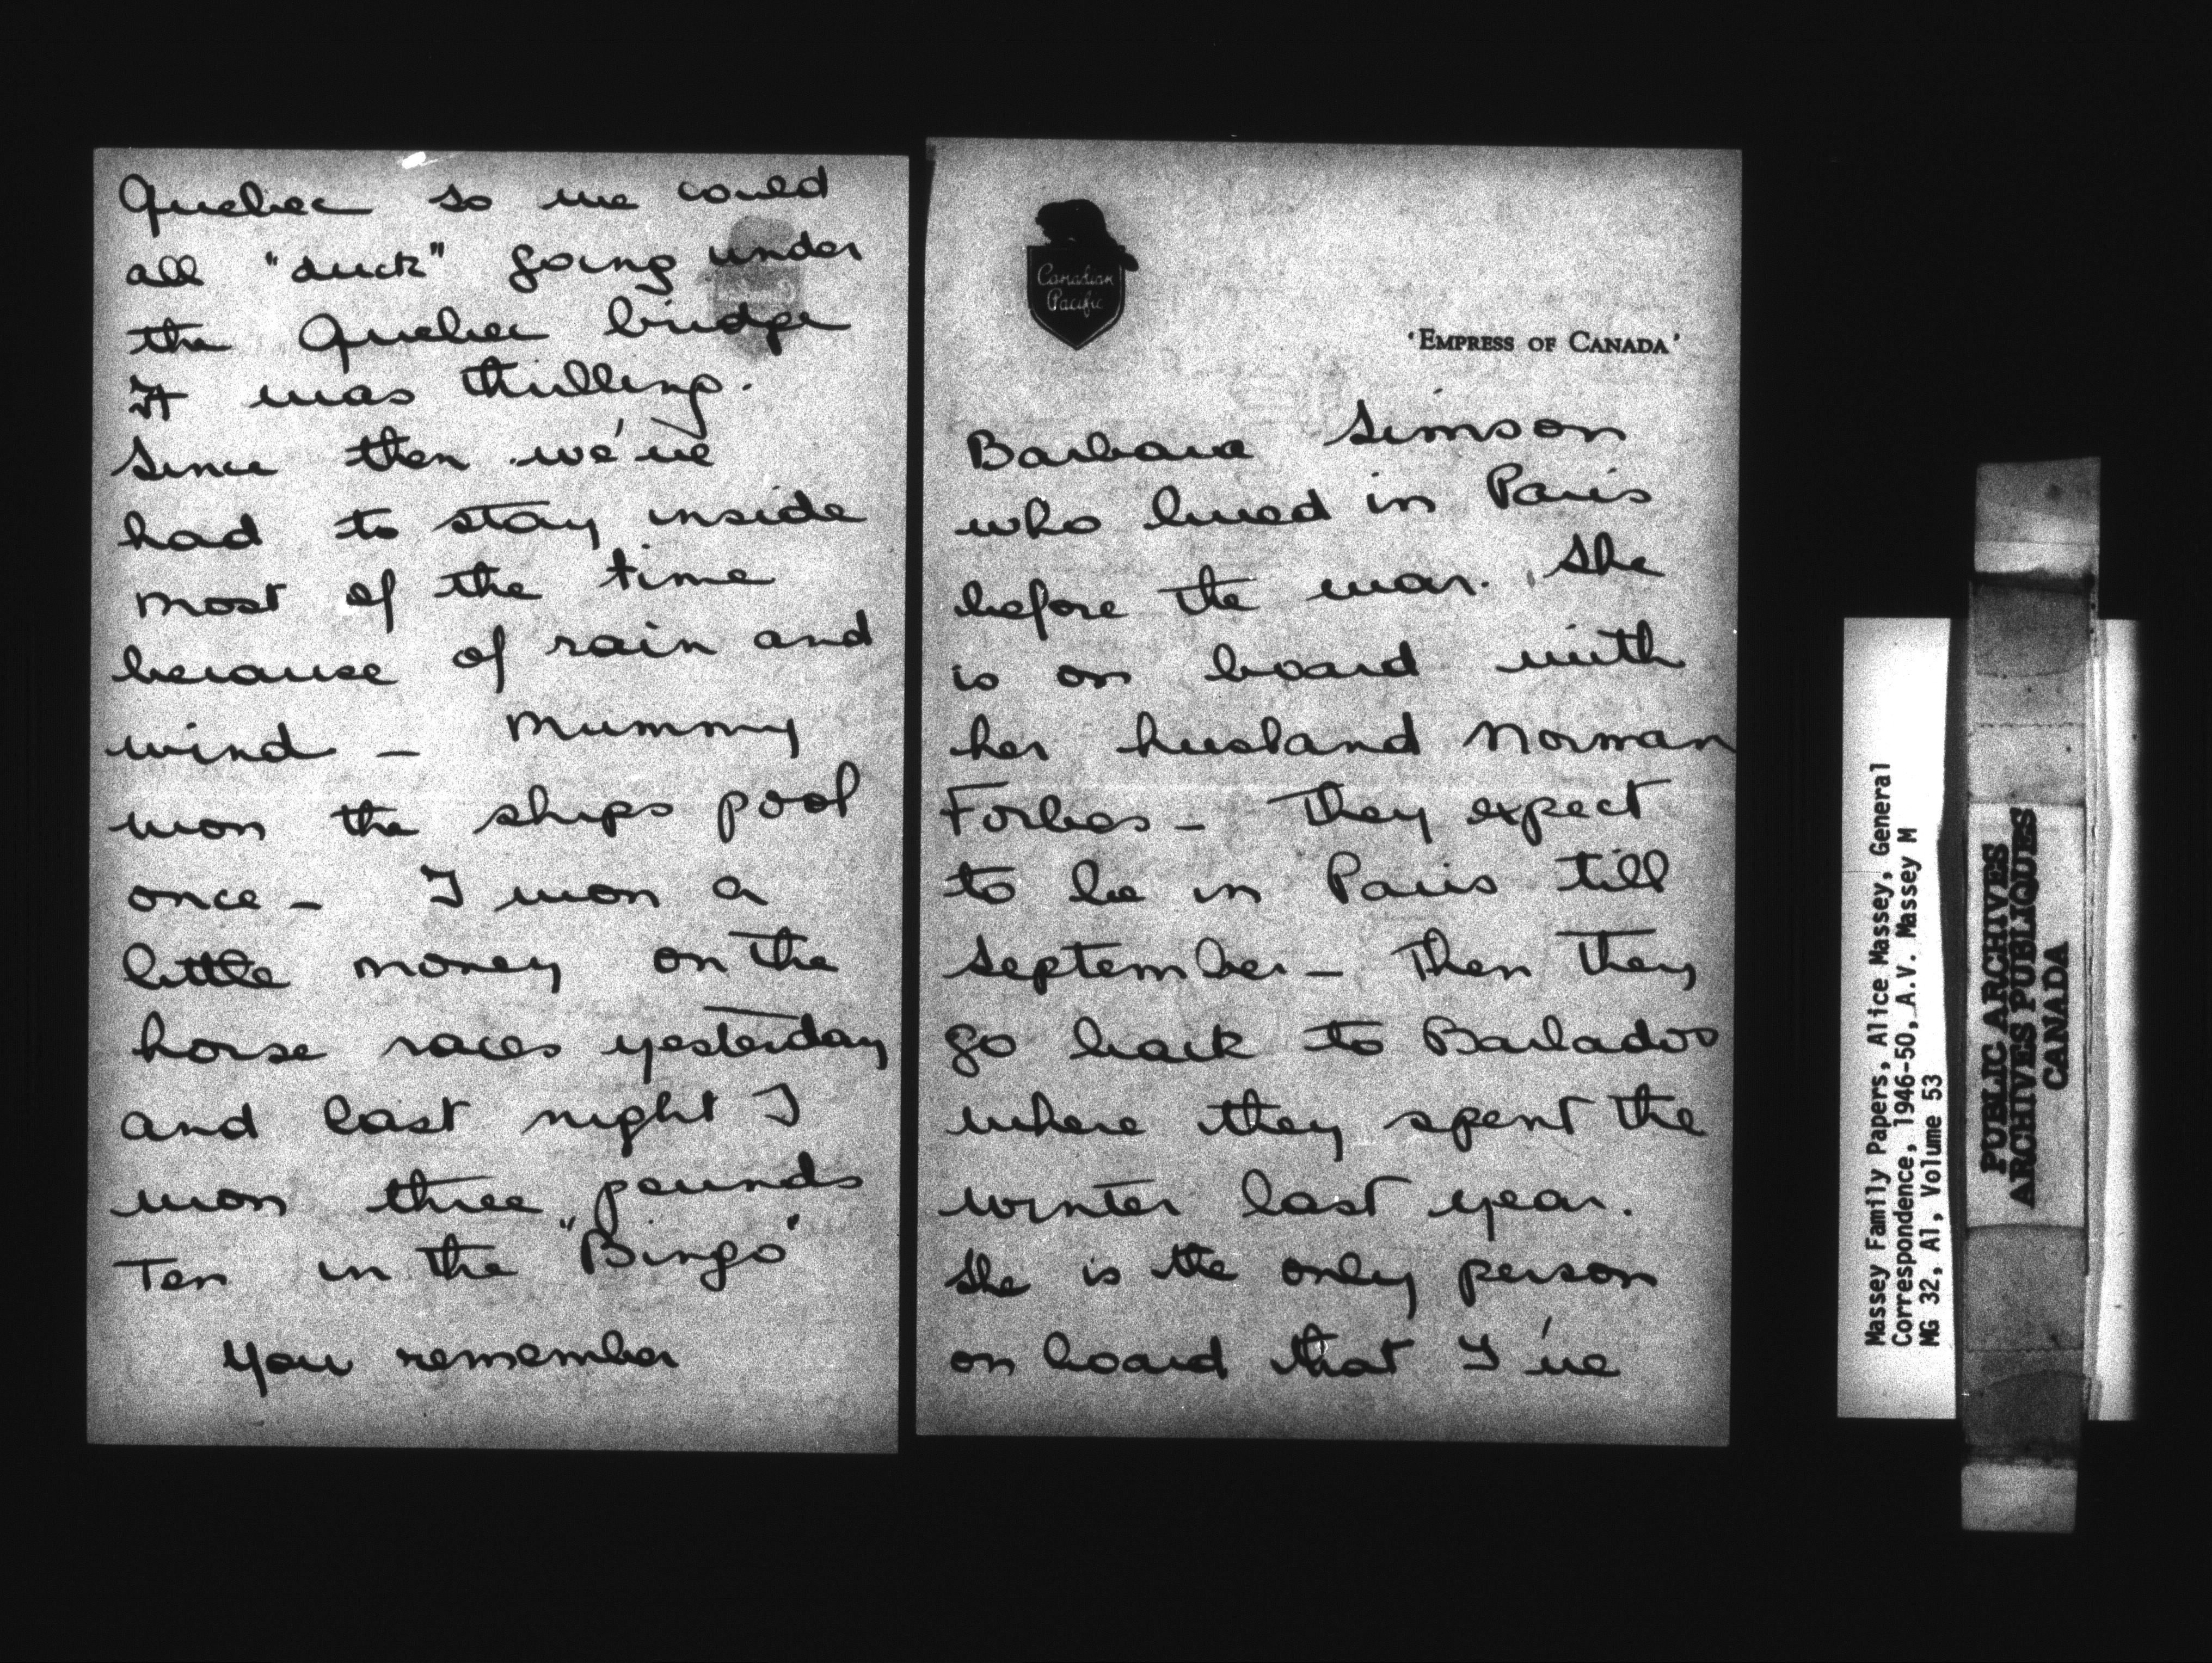 Quebec so we could
all "duck" going under
the Quebec bridge
It was thrilling.
Since then we've
had to stay inside
most of the time
because of rain and
wind – Mummy
won the ships pool
once – I won a
little money on the
horse races yesterday
and last night I
won three pounds
Ten in the "Bingo"
You remember
Canadian
Pacific
'EMPRESS OF CANADA'
Barbara Simson
who lived in Paris
before the war. She
is on board with
her husband Norman
Forbes – They expect
to be in Paris till
September – Then they
go back to Barbados
where they spent the
winter last year.
She is the only person
on board that I've
Massey Family Papers, Alice Massey, General
Correspondence, 1946-50, A.V. Massey M
MG 32, A1, Volume 53
PUBLIC ARCHIVES
ARCHIVES PUBLIQUES
CANADA